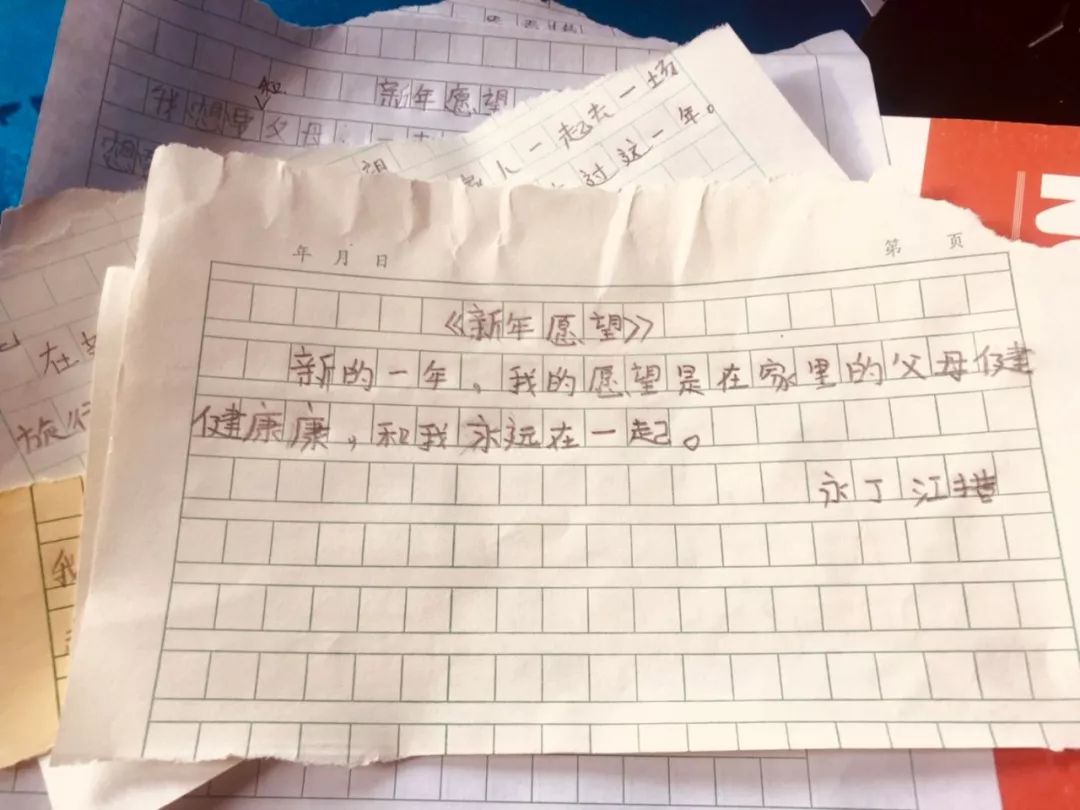 新年愿望
我想和父母
人一起去一场
过这一年。
年 月 日
第 页
《新年愿望》
新的一年,我的愿望是在家里的父母健
健康康,和我永远在一起。
永丁江
在
旅行
我